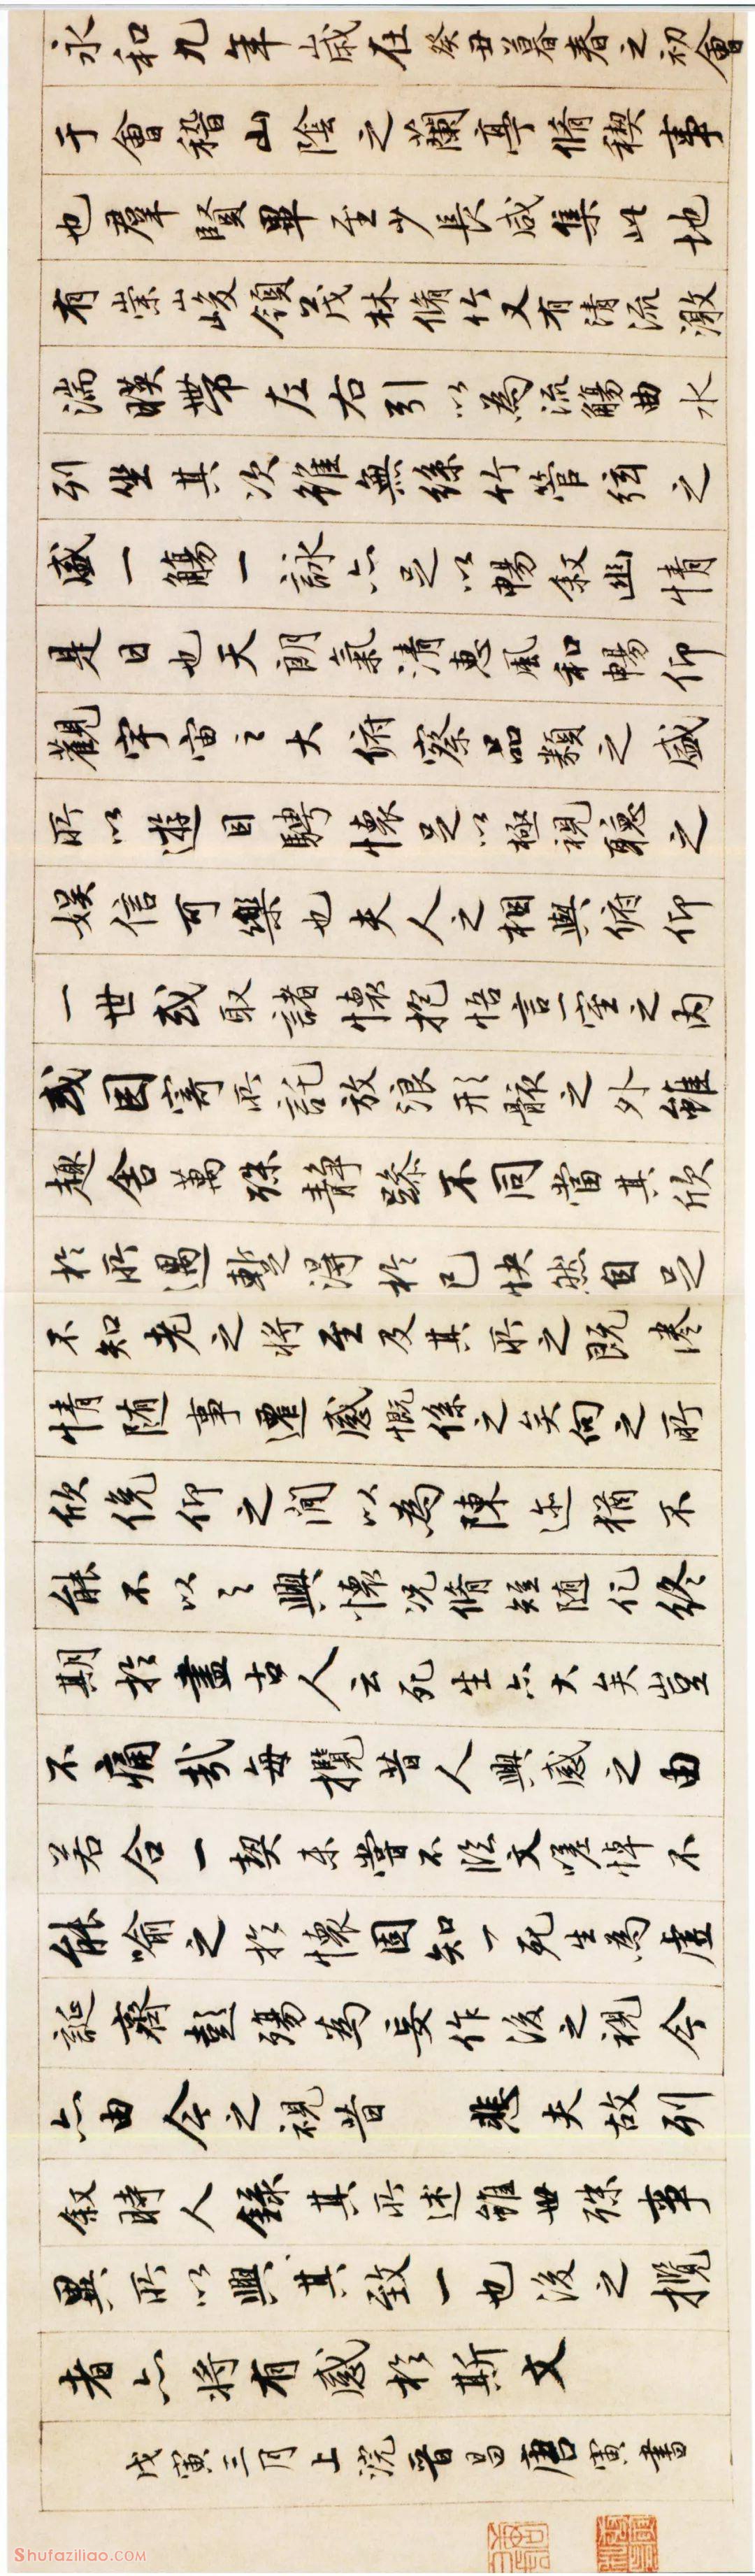 永和九年歲在癸丑暮春之初會
于會稽山陰之蘭亭脩稧事
也羣賢畢至少長咸集此地
有崇山峻領茂林脩竹又有清流激
湍暎帶左右引以為流觴曲水
列坐其次雖無絲竹管弦之
盛一觴一詠亦足以暢敘幽情
是日也天朗氣清惠風和暢仰
觀宇宙之大俯察品類之盛
所以遊目騁懷足以極視聽之
娛信可樂也夫人之相與俯仰
一世或取諸懷抱悟言一室之內
或因寄所託放浪形骸之外雖
趣舍萬殊靜躁不同當其欣
於所遇暫得於己快然自足
不知老之將至及其所之既惓
情隨事遷感慨係之矣向之所
欣俛仰之間以為陳迹猶不
能不以之興懷況脩短隨化終
期於盡古人云死生亦大矣豈
不痛哉每攬昔人興感之由
若合一契未嘗不臨文嗟悼不
能喻之於懷固知一死生為虛
誕齊彭殤為妄作後之視今
亦由今之視昔 悲夫故列
敘時人錄其所述雖世殊事
異所以興其致一也後之攬
者亦將有感於斯文
戊寅三月上浣晉昌唐寅書
Shufaziliao.COM